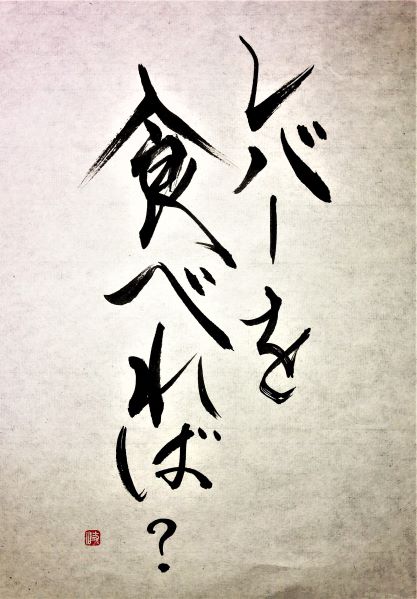 レバーを
食べれば？